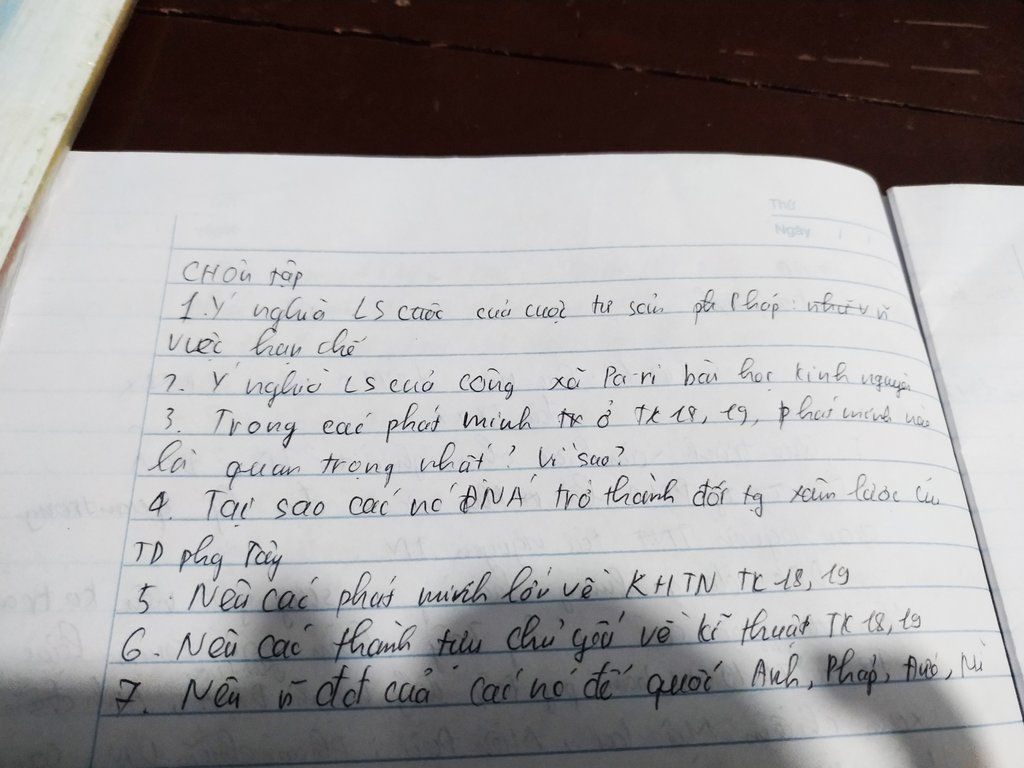 Thứ
Ngày
CH ôn tập
1. Ý nghĩa LS cuộc của cuộc tư sản Pháp:
việc hạn chế
2. Ý nghĩa LS của công xã Pa-ri bài học kinh nguyện
3. Trong các phát minh TK ở TK 18, 19, phát minh nào
là quan trọng nhất? Vì sao?
4. Tại sao các nc ĐNÁ trở thành đối tg xâm lược của
TD phg Tây
5. Nêu các phát minh lớn về KHTN TK 18, 19
6. Nêu các thành tựu chủ yếu về kĩ thuật TK 18, 19
7. Nêu n~ đđ của các nc đế quốc Anh, Pháp, Đức, Mĩ